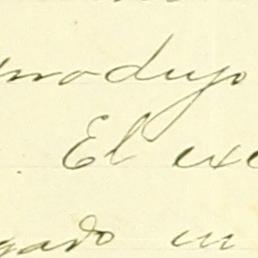 produjo
El exc
gado en